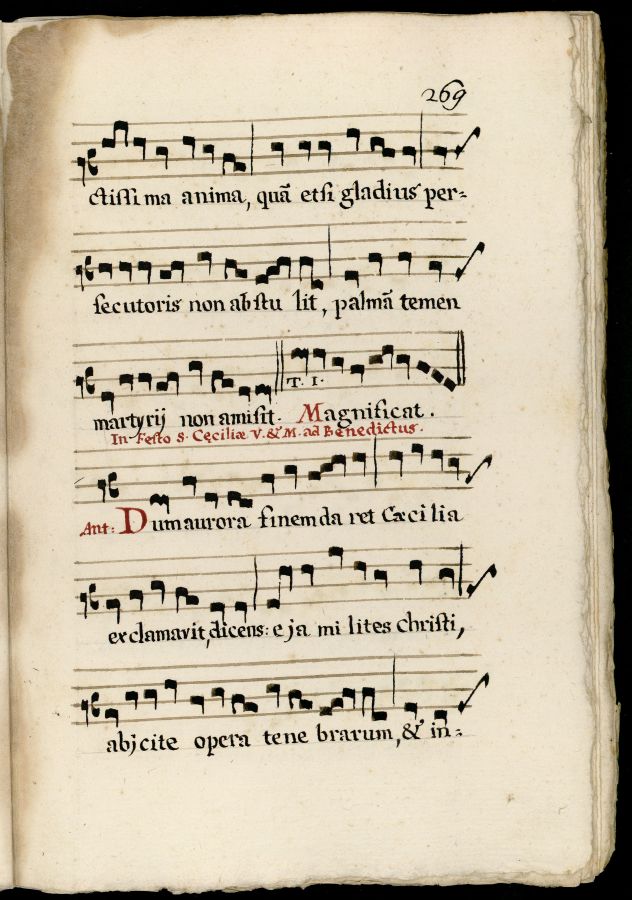 269
ctissima anima, quā etsi gladius per=
secutoris non abstu lit, palmā temen
martyrij non amisit. T. I. Magnificat.
In Festo S. Cęciliæ V. & M. ad Benedictus.
Ant: Dum aurora finem da ret Cæcilia
exclamavit, dicens: eja milites Christi,
abjcite opera tene brarum, & in=